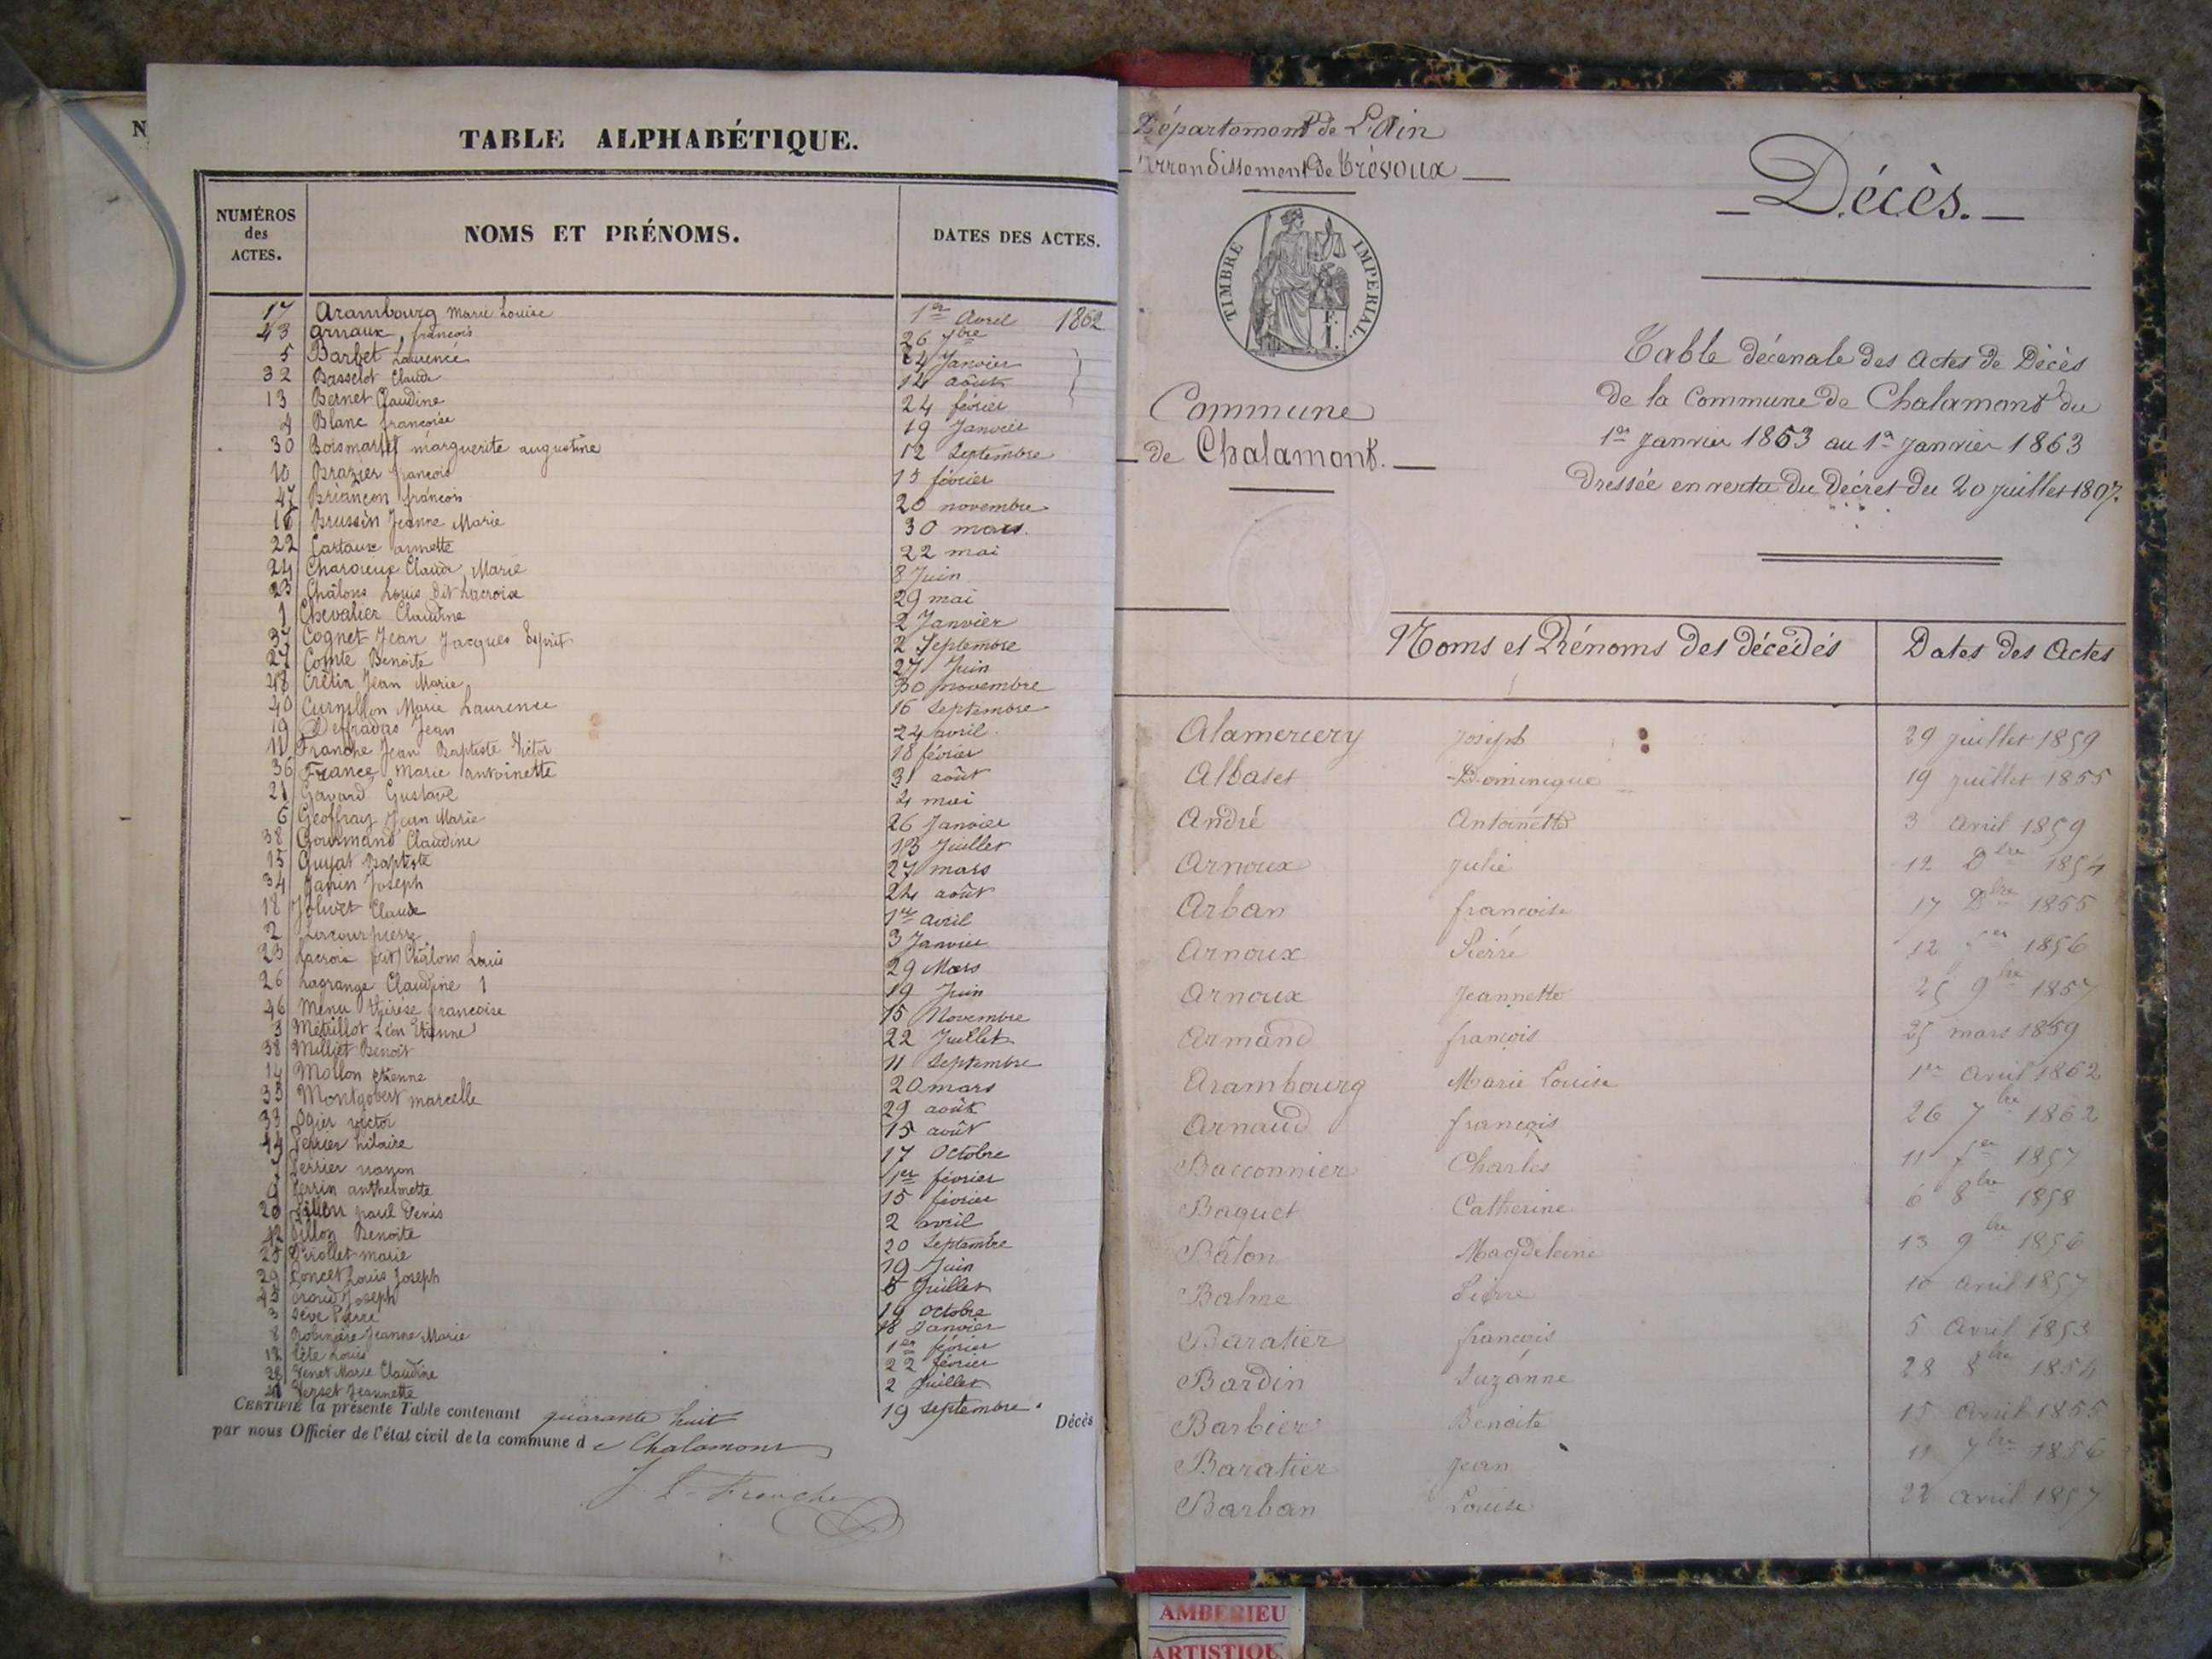 N
TABLE ALPHABÉTIQUE.
NUMÉROS des ACTES. NOMS ET PRÉNOMS. DATES DES ACTES.
17 Arambourg Marie Louise 1er Avril 1862
43 Arnaux françois 26 7bre
5 Barbet Laurence 24 Janvier
32 Basselot Claude 14 août
13 Bernet Claudine 24 février
4 Blanc françoise 19 Janvier
30 marguerite augustine 12 Septembre
10 Brazier françois 13 février
47 Briançon françois 20 novembre
16 Brussin Jeanne Marie 30 mars
22 annette 22 mai
24 Claude Marie 8 Juin
23 Châlons Louis dit Lacroix 29 mai
1 Chevalier Claudine 2 Janvier
37 Cognet Jean Jacques Esprit 2 Septembre
27 Comte Benoite 27 Juin
48 Crétin Jean Marie 30 novembre
40 Curnillon Marie Laurence 16 Septembre
19 Deffradas Jean 24 avril
11 Franche Jean Baptiste Victor 18 février
36 France Marie antoinette 31 août
21 Gavard Gustave 4 mai
6 Geoffray Jean Marie 26 Janvier
38 Gourmand Claudine 13 Juillet
15 Guyat Baptiste 27 mars
34 Janin Joseph 24 août
18 Jolivet Claude 1er avril
2 pierre 3 Janvier
23 Lacroix dit Châlons Louis 29 Mars
26 Lagrange Claudine 19 Juin
46 Menu thérèse françoise 15 Novembre
3 Métrillot Léon Etienne 22 Juillet
38 Milliet Benoit 11 Septembre
14 Mollon etienne 20 mars
35 Montgobert marcelle 29 août
33 Ogier victor 15 août
44 Perrier hilaire 17 Octobre
7 Perrier 1er février
9 Perrin anthelmette 15 février
20 Pillon paul Denis 2 avril
42 Pillon Benoite 20 Septembre
25 Pirollet marie 19 Juin
29 Poncet Louis Joseph 5 Juillet
45 Joseph 19 octobre
3 Sève Pierre 18 Janvier
8 Robinière Jeanne Marie 1er février
12 Tête Louis 22 février
28 Venet Marie Claudine 2 Juillet
41 Verset Jeannette 19 septembre.
CERTIFIÉ la présente Table contenant quarante huit Décès
par nous Officier de l'état civil de la commune de Chalamont
Département de L'Ain
Arrondissement de Trévoux
TIMBRE IMPERIAL.
Commune
de Chalamont.
Décès.
Table décenale des Actes de Décès
de la Commune de Chalamont du
1er Janvier 1853 au 1er Janvier 1863
Dressée en vertu du Décret du 20 juillet 1807.
Noms et Prénoms des décédés Dates des Actes
Alamercery Joseph 29 juillet 1859
Albatet Dominique 19 juillet 1855
André Antoinette 3 Avril 1859
Arnoux Julie 12 Dbre 1854
Arban françoise 17 Dbre 1855
Arnoux Pierre 12 fer 1856
Arnoux Jeannette 25 9bre 1857
Armand françois 25 mars 1859
Arambourg Marie Louise 1er Avril 1862
Arnaud françois 26 7bre 1862
Bacconnier Charles 11 fer 1857
Baquet Catherine 6 8bre 1858
Bâlon Magdeleine 13 9bre 1856
Balme Pierre 10 avril 1857
Baratier françois 5 Avril 1853
Bardin Suzanne 28 8bre 1854
Barbier Benoite 15 Avril 1855
Baratier Jean 11 7bre 1856
Barban Louise 22 avril 1857
AMBERIEU
ARTISTIQU